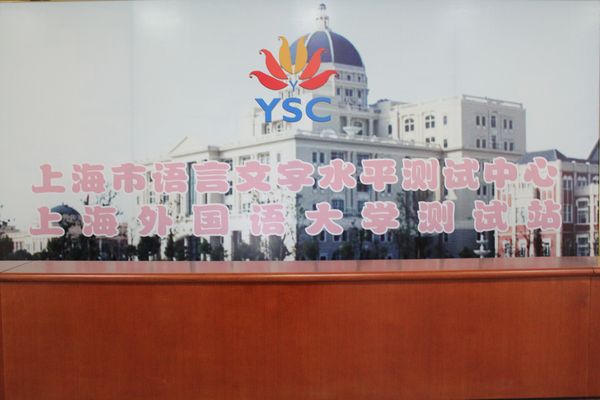 YSC
上海市语言文字水平测试中心
上海外国语大学测试站